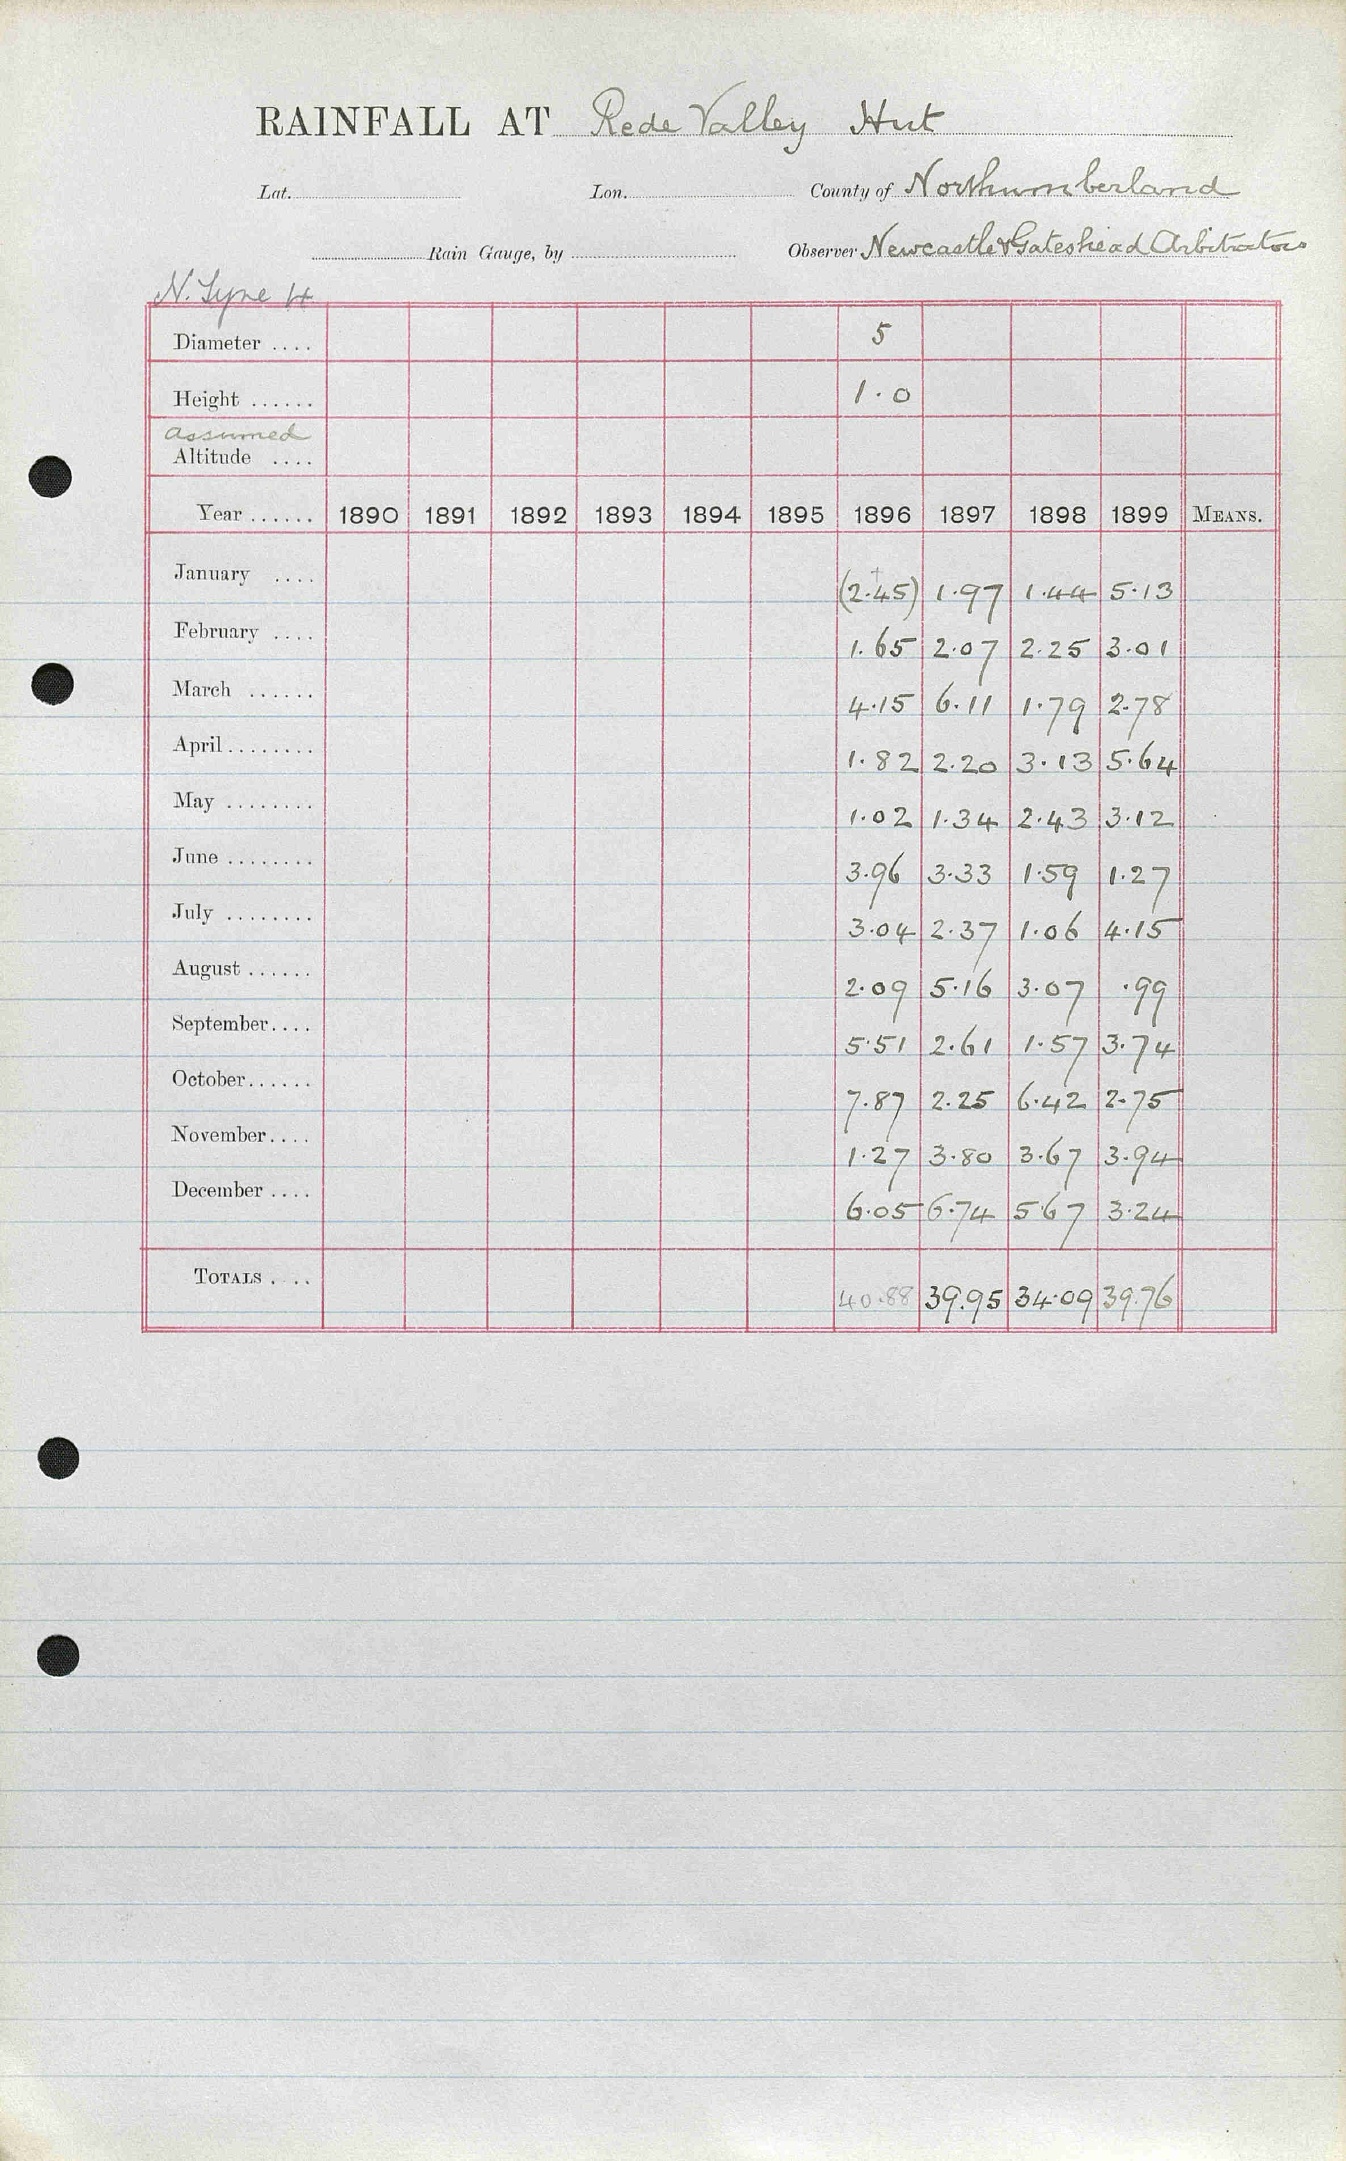 RAINFALL AT Rede Valley Hut
Lat. Lon. County of Northumberland
Rain Gauge, by Observer Newcastle & Gateshead Arbitrators
N. Tyne 4
Diameter .... 5
Height ...... 1.0
assumed
Altitude ....
Year ...... 1890 1891 1892 1893 1894 1895 1896 1897 1898 1899 MEANS.
January .... (2.45) 1.97 1.44 5.13
February .... 1.65 2.07 2.25 3.01
March ...... 4.15 6.11 1.79 2.78
April ........ 1.82 2.20 3.13 5.64
May ........ 1.02 1.34 2.43 3.12
June ........ 3.96 3.33 1.59 1.27
July ........ 3.04 2.37 1.06 4.15
August ...... 2.09 5.16 3.07 .99
September.... 5.51 2.61 1.57 3.74
October...... 7.87 2.25 6.42 2.75
November.... 1.27 3.80 3.67 3.94
December .... 6.05 6.74 5.67 3.24
TOTALS .... 40.88 39.95 34.09 39.76